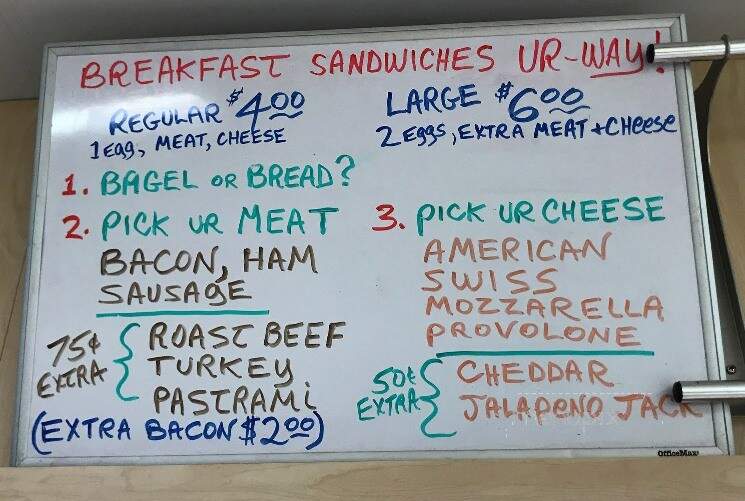 BREAKFAST SANDWICHES UR-WAY!
REGULAR $4.00
1 Egg, MEAT, CHEESE
LARGE $6.00
2 Eggs, EXTRA MEAT + CHEESE
1. BAGEL OR BREAD?
2. PICK UR MEAT
BACON, HAM
SAUSAGE
75¢ EXTRA
ROAST BEEF
TURKEY
PASTRAMi
(EXTRA BACON $2.00)
3. PICK UR CHEESE
AMERICAN
SWISS
MOZZARELLA
PROVOLONE
50¢ EXTRA
CHEDDAR
JALAPENO JACK
OfficeMax